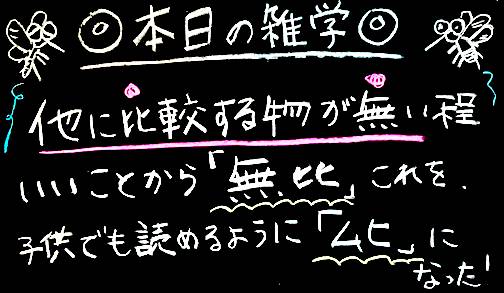 ◎本日の雑学◎
他に比較する物が無い程
いいことから「無比」これを、
子供でも読めるように「ムヒ」に
なった!